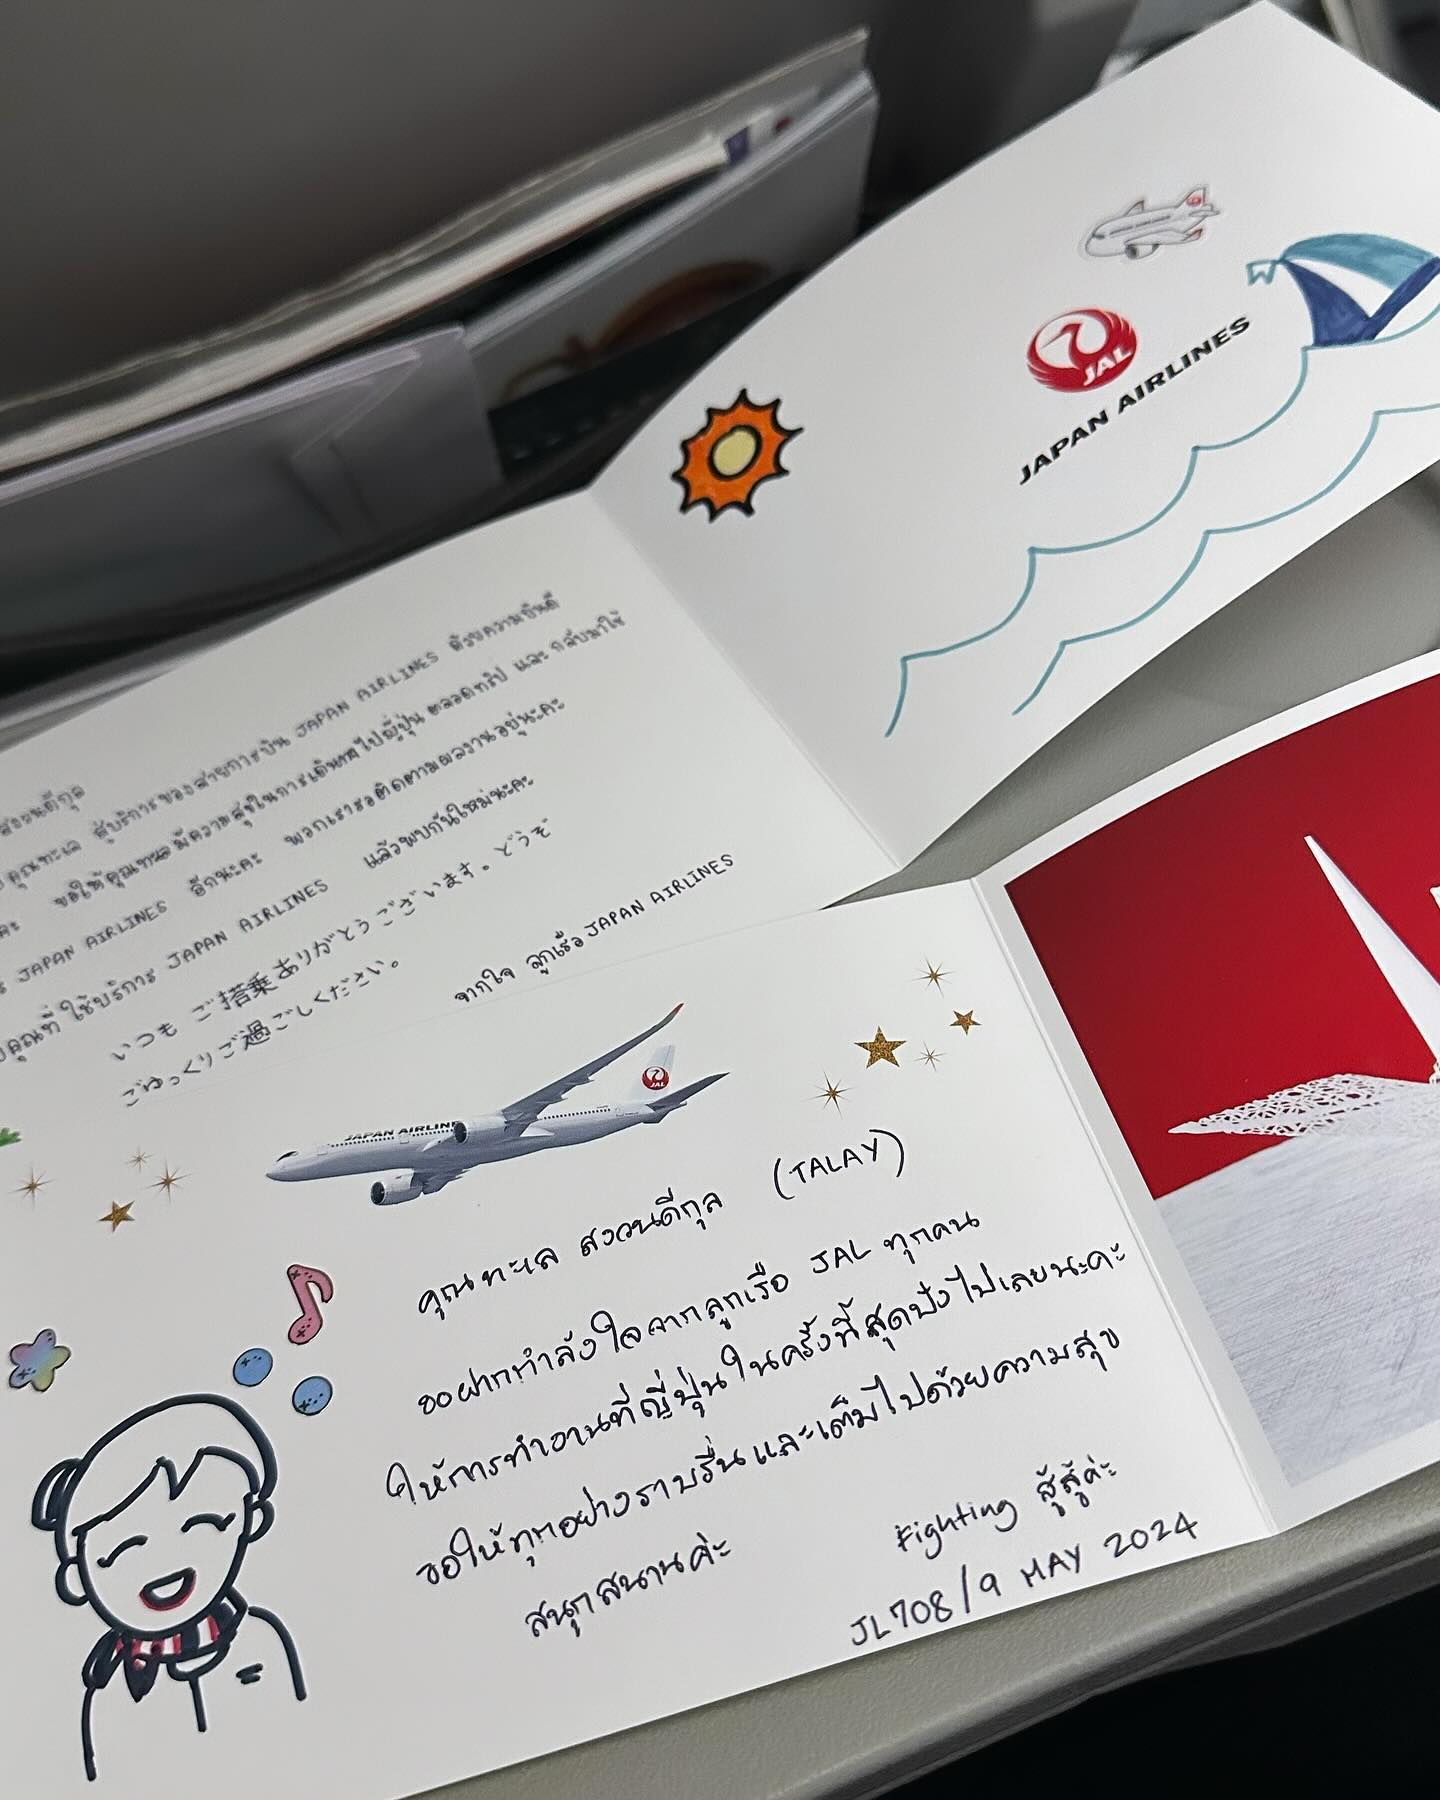 JAL
JAPAN AIRLINES
สงวนดีกุล
คุณทะเล สู่บริการของสายการบิน JAPAN AIRLINES ด้วยความยินดี
ขอให้คุณทะเลมีความสุขในการเดินทางไปญี่ปุ่น ตลอดทริป และ กลับมาใช้
JAPAN AIRLINES อีกนะคะ พวกเรารอติดตามผลงานอยู่นะคะ
คุณที่ใช้บริการ JAPAN AIRLINES แล้วพบกันใหม่นะคะ
いつも ご搭乗ありがとうございます。どうぞ
ごゆっくりご過ごしください。
จากใจ ลูกเรือ JAPAN AIRLINES
JAPAN AIRLINES
JAL
คุณทะเล สงวนดีกุล (TALAY)
ขอฝากกำลังใจจากลูกเรือ JAL ทุกคน
ให้การทำงานที่ญี่ปุ่นในครั้งนี้สุดปังไปเลยนะคะ
ขอให้ทุกอย่างราบรื่นและเต็มไปด้วยความสุข
สนุกสนานค่ะ
Fighting สู้สู้ค่ะ
JL708/9 MAY 2024